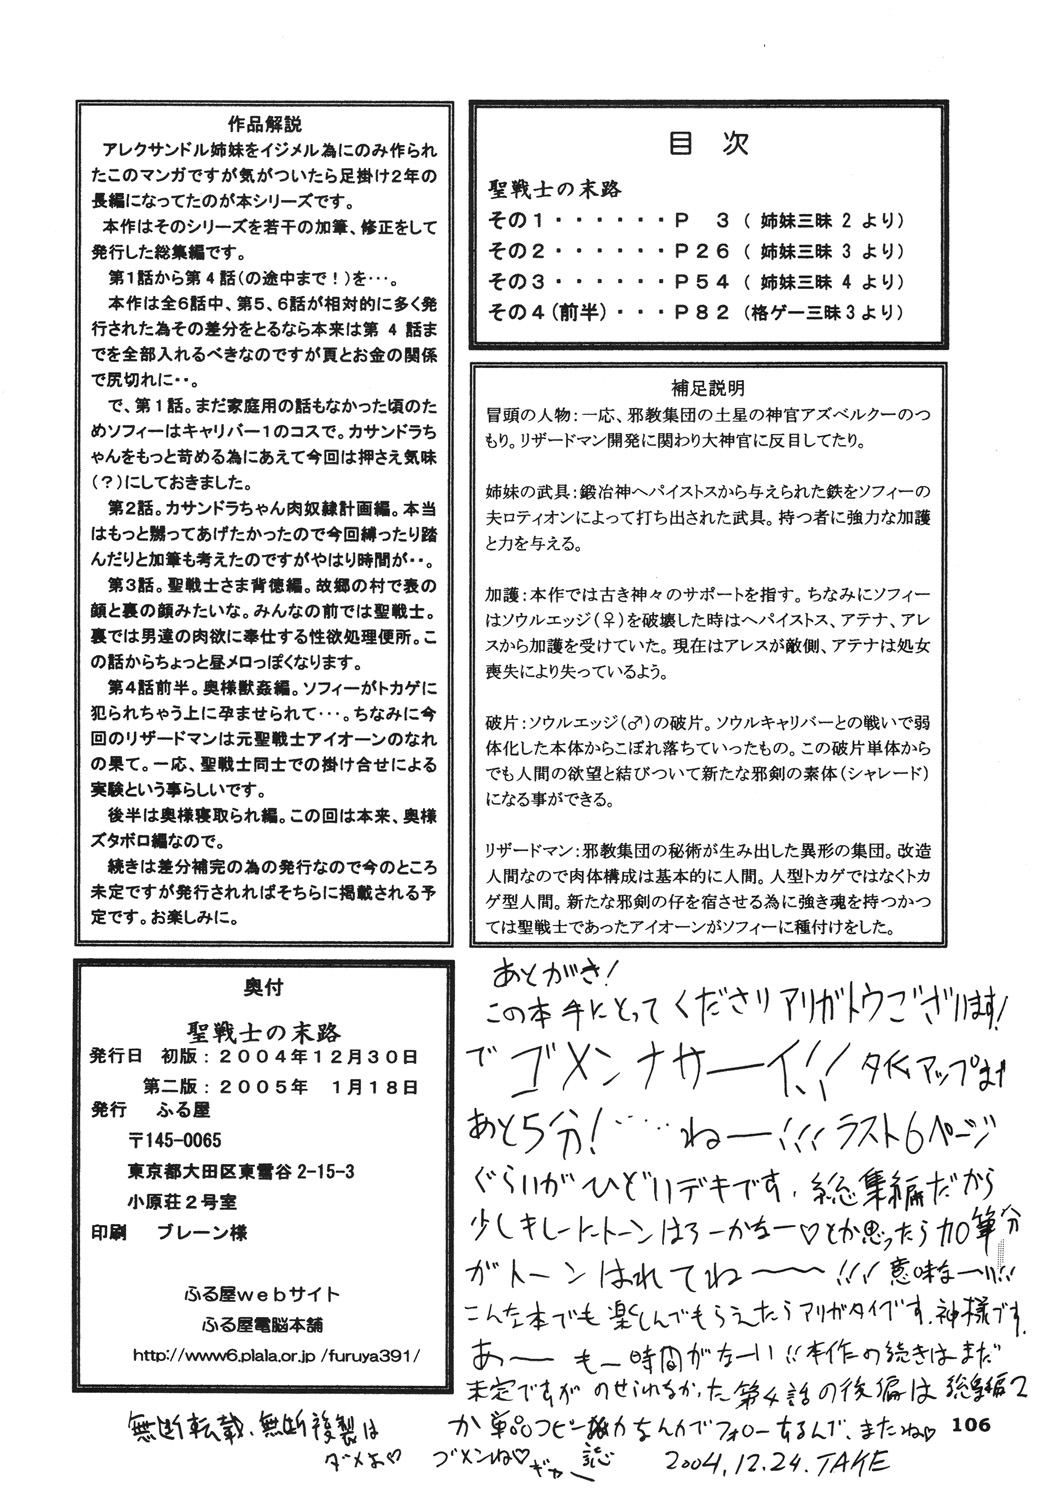 作品解説
アレクサンドル姉妹をイジメル為にのみ作られ
たこのマンガですが気がついたら足掛け2年の
長編になってたのが本シリーズです。
本作はそのシリーズを若干の加筆、修正をして
発行した総集編です。
第1話から第4話(の途中まで!)を・・・。
本作は全6話中、第5、6話が相対的に多く発
行された為その差分をとるなら本来は第4話ま
でを全部入れるべきなのですが頁とお金の関係
で尻切れに・・。
で、第1話。まだ家庭用の話もなかった頃のた
めソフィーはキャリバー1のコスで。カサンドラち
ゃんをもっと苛める為にあえて今回は押さえ気味
(?)にしておきました。
第2話。カサンドラちゃん肉奴隷計画編。本当
はもっと嬲ってあげたかったので今回縛ったり踏
んだりと加筆も考えたのですがやはり時間が・・。
第3話。聖戦士さま背徳編。故郷の村で表の
顔と裏の顔みたいな。みんなの前では聖戦士。
裏では男達の肉欲に奉仕する性欲処理便所。こ
の話からちょっと昼メロっぽくなります。
第4話前半。奥様獣姦編。ソフィーがトカゲに
犯られちゃう上に孕ませられて・・・。ちなみに今
回のリザードマンは元聖戦士アイオーンのなれ
の果て。一応、聖戦士同士での掛け合せによる
実験という事らしいです。
後半は奥様寝取られ編。この回は本来、奥様
ズタボロ編なので。
続きは差分補完の為の発行なので今のところ
未定ですが発行されればそちらに掲載される予
定です。お楽しみに。
目 次
聖戦士の末路
その1・・・・・・P 3( 姉妹三昧 2 より)
その2・・・・・・P26( 姉妹三昧 3 より)
その3・・・・・・P54( 姉妹三昧 4 より)
その4(前半)・・・P82(格ゲー三昧3より)
補足説明
冒頭の人物:一応、邪教集団の土星の神官アズベルクーのつ
もり。リザードマン開発に関わり大神官に反目してたり。
姉妹の武具:鍛冶神ヘパイストスから与えられた鉄をソフィーの
夫ロティオンによって打ち出された武具。持つ者に強力な加護
と力を与える。
加護:本作では古き神々のサポートを指す。ちなみにソフィー
はソウルエッジ(♀)を破壊した時はヘパイストス、アテナ、アレ
スから加護を受けていた。現在はアレスが敵側、アテナは処女
喪失により失っているよう。
破片:ソウルエッジ(♂)の破片。ソウルキャリバーとの戦いで弱
体化した本体からこぼれ落ちていったもの。この破片単体から
でも人間の欲望と結びついて新たな邪剣の素体(シャレード)
になる事ができる。
リザードマン:邪教集団の秘術が生み出した異形の集団。改造
人間なので肉体構成は基本的に人間。人型トカゲではなくトカ
ゲ型人間。新たな邪剣の仔を宿させる為に強き魂を持つかつ
ては聖戦士であったアイオーンがソフィーに種付けをした。
奥付
聖戦士の末路
発行日 初版:2004年12月30日
第二版:2005年 1月18日
発行 ふる屋
〒145-0065
東京都大田区東雪谷2-15-3
小原荘2号室
印刷 ブレーン様
ふる屋webサイト
ふる屋電脳本舗
http://www6.plala.or.jp/furuya391/
あとがき!
この本手にとってくださりアリガトウございます!
でゴメンナサーイ!! タイムアップまで
あと5分!・・・・・ねー!!! ラスト6ページ
ぐらいがひどいデキです。総集編だから
少しキレーにトーンはろーかなー♡とか思ったら加筆分
がトーンはれてねー〜〜!!! 意味なーい!!
こんな本でも楽しんでもらえたらアリガタイです。神様です。
あー〜 もー時間がなーい!! 本作の続きはまだ
未定ですがのせられなかった第4話の後編は総集編2
か単品コピー誌なんかでフォローするんで、またね♡
ゴメンね♡ ギャー
2004.12.24. TAKE
無断転載、無断複製は
ダメよ♡
106